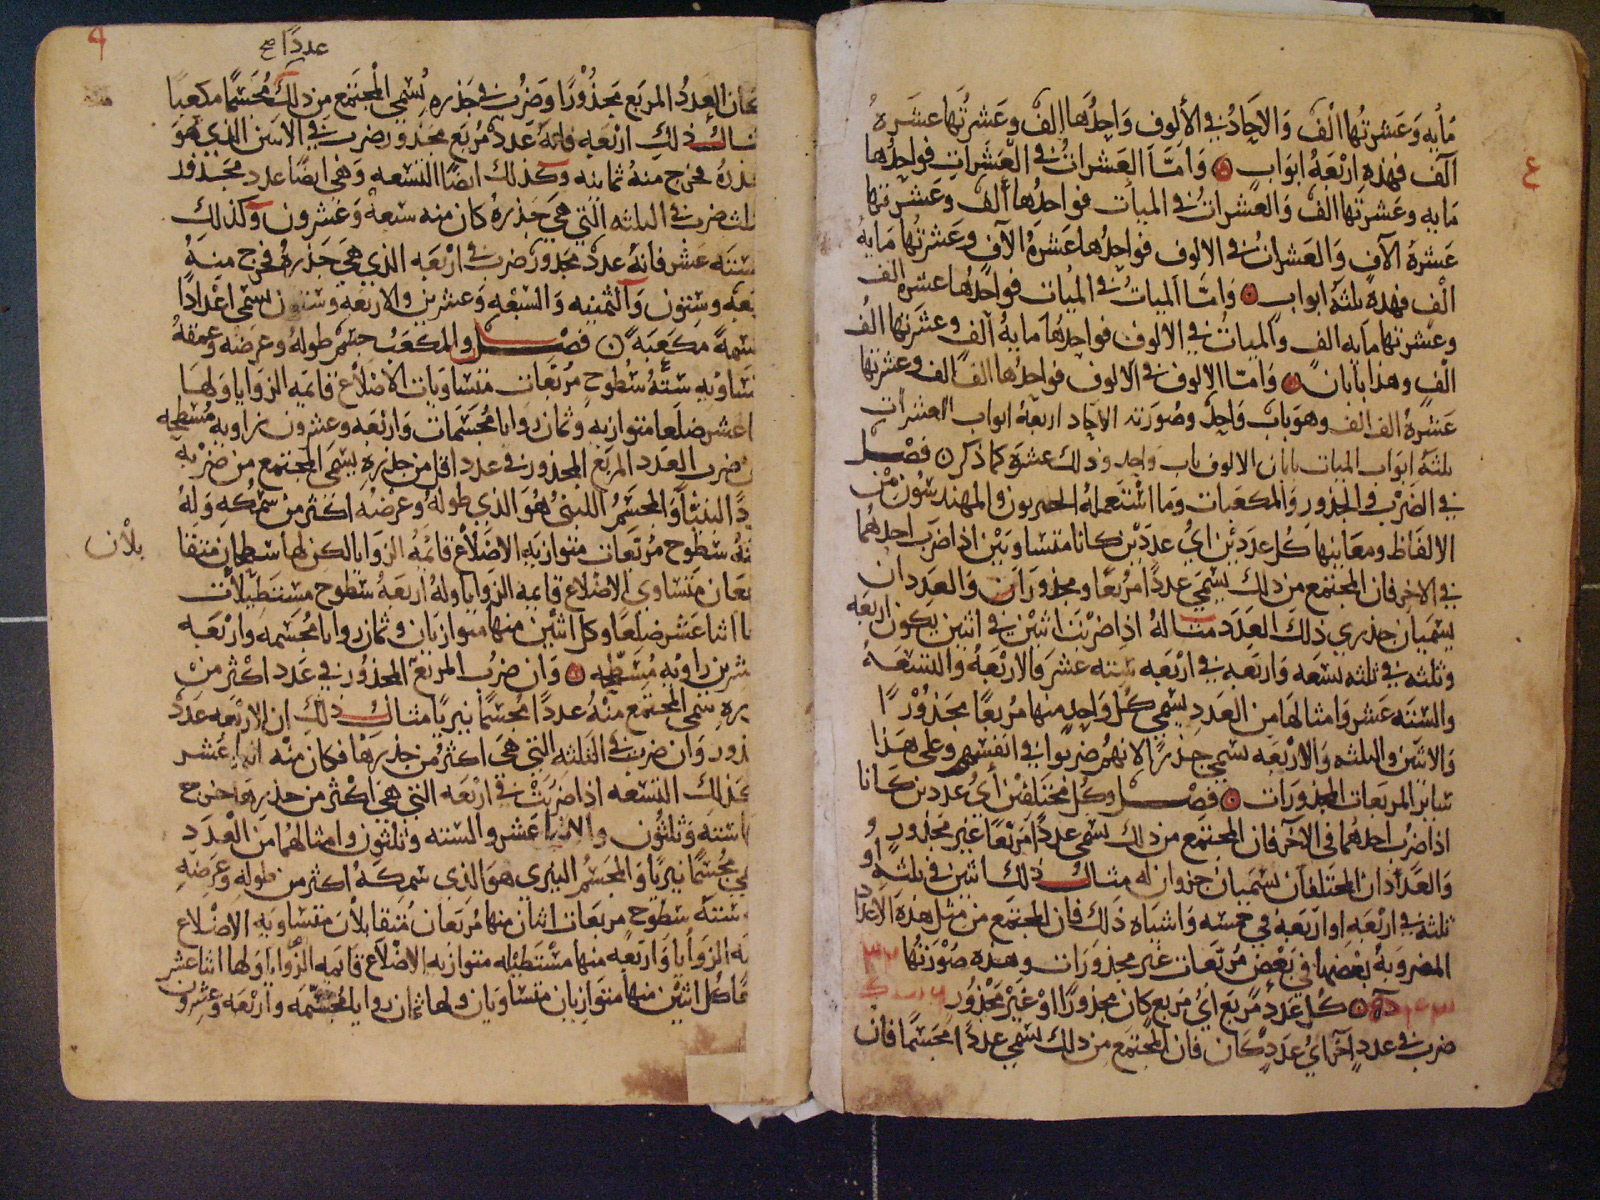 مايه وعشرتها الف والاحاد في الألوف واحدها الف وعشرتها عشره
آلف فهذه اربعة ابواب واما العشرات في العشرات فواحدها
مايه وعشرتها الف والعشرات في الميات فواحدها الف وعشرتها
عشرة الآف والعشرات في الالوف فواحدها عشرة الآف وعشرتها مايه
الف فهذه ثلثة ابواب واما الميات في الميات فواحدها عشره الف
وعشرتها مايه الف والميات في الالوف فواحدها ماية آلف وعشرتها الف
الف وهذا بابان واما الالوف في الالوف فواحدها الف الف وعشرتها
عشرة الف الف وهو باب واحد وصورته الآحاد اربعة ابواب العشرات
ثلثة ابواب الميات بابان الالوف باب واحد وذلك عشرة كما ذكر فصل
في الضرب والجذور والمكعبات وما استعمله والمهندسون من
الالفاظ ومعانيها كل عددين اي عددين كانا متساويين اذا ضرب احدهما
في الاخر فان المجتمع من ذلك يسمى عددا مربعا ومجذورا والعددان
يسميان جذري ذلك العدد مثاله اذا ضربت اثنين في اثنين يكون اربعه
وثلثه في ثلثه تسعه واربعه في اربعه سته عشر فالاربعة والتسعة
والسته عشر وامثالها من العدد يسمى كل واحد منها مربعا مجذورا
والاثنين والثلثه والاربعه تسمى جذرا لانهم ضربوا في انفسهم وعلى هذا
سائر المربعات المجذورات فصل وكل مختلفين أي عددين كانا
اذا ضرب احدهما في الآخر فان المجتمع من ذلك يسمى عددا مربعا غير مجذور
والعددان المختلفان يسميان جزوان له مثال ذلك اثنين في ثلثه او
ثلثه في اربعه او اربعه في خمسه واشباه ذلك فان المجتمع من مثل هذه الاعداد
المضروبة بعضها في بعض مربعات غير مجذورات وهذه صورتها
كل عدد مربع اي مربع كان مجذورا او غير مجذور
ضرب في عدد آخر اي عدد كان فان المجتمع من ذلك يسمى عددا مجسما فان
عددا صح
كان العدد المربع مجذورا وضرب في جذره يسمى المجتمع من ذلك مجسما مكعبا
مثال ذلك اربعه فانه عدد مربع مجذور يضرب في الاثنين الذي هو
جذره فخرج منه ثمانيه وكذلك ايضا التسعه وهي ايضا عدد مجذور
ضرب في الثلثه التي هي جذره كان منه سبعه وعشرون وكذلك
سته عشر فانه عدد مجذور ضرب في اربعه الذي هي جذره فخرج منه
اربعه وستون والثمنيه والسبعه وعشرين والاربعه وستون يسمى اعدادا
مجسمة مكعبة فصل والمكعب جسم طوله وعرضه وعمقه
متساويه ستة سطوح مربعات متساويات الاضلاع قايمه الزوايا ولها
اثنا عشر ضلعا متوازيه وثمان زوايا مجسمات واربعه وعشرون زاويه مسطحه
ضرب العدد المربع المجذور في عدد اقل من جذره يسمى المجتمع من ضربه
والمجسم اللبني هو الذي طوله وعرضه اكثر من سمكه وله
سته سطوح مربعات متوازيه الاضلاع قائمة الزوايا لكن لها سطحان متقا
بلان
مربعان متساوي الاضلاع قايمه الزوايا وله اربعة سطوح مستطيلات
اثنا عشر ضلعا وكل اثنين منها متوازيان وثمان زوايا مجسمه واربعه
وعشرين زاويه مسطحه وان ضرب المربع المجذور في عدد اكثر من
جذره سمى المجتمع منه عددا مجسما بيريا مثال ذلك ان الاربعه عدد
مجذور وان ضرب في الثلثه التي هي اكثر من جذرها فكان منه اثنا عشر
كذلك التسعه اذا ضربت في اربعه التي هي اكثر من جذرها خرج
سته وثلثون والاثنا عشر والسته وثلثون وامثالهما من العدد
يسمى مجسما بيريا والمجسم البيري هو الذي سمكه اكثر من طوله وعرضه
سته سطوح مربعات اثنان منها مربعان متقابلان متساويه الاضلاع
قايمه الزوايا واربعه منها مستطيله متوازيه الاضلاع قايمه الزوايا ولها اثنا عشر
ضلعا كل اثنين منها متوازيان متساويان ولها ثمان زوايا مجسمه واربعه وعشرون